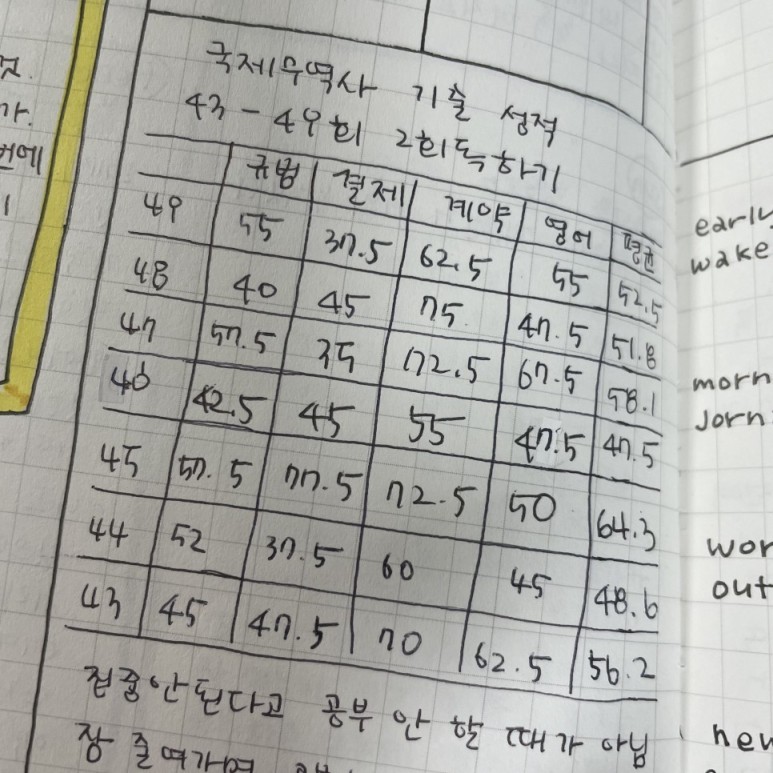 국제무역사 기출 성적
43 - 49회 2회독하기
규범 결제 계약 영어 평균
49 55 37.5 62.5 55 52.5
48 40 45 75 47.5 51.8
47 57.5 35 72.5 67.5 58.1
46 42.5 45 55 47.5 47.5
45 57.5 77.5 72.5 50 64.3
44 52 37.5 60 45 48.6
43 45 47.5 70 62.5 56.2
집중안된다고 공부 안 할 때가 아님
early
wake
morn
Jorn
wor
out
new